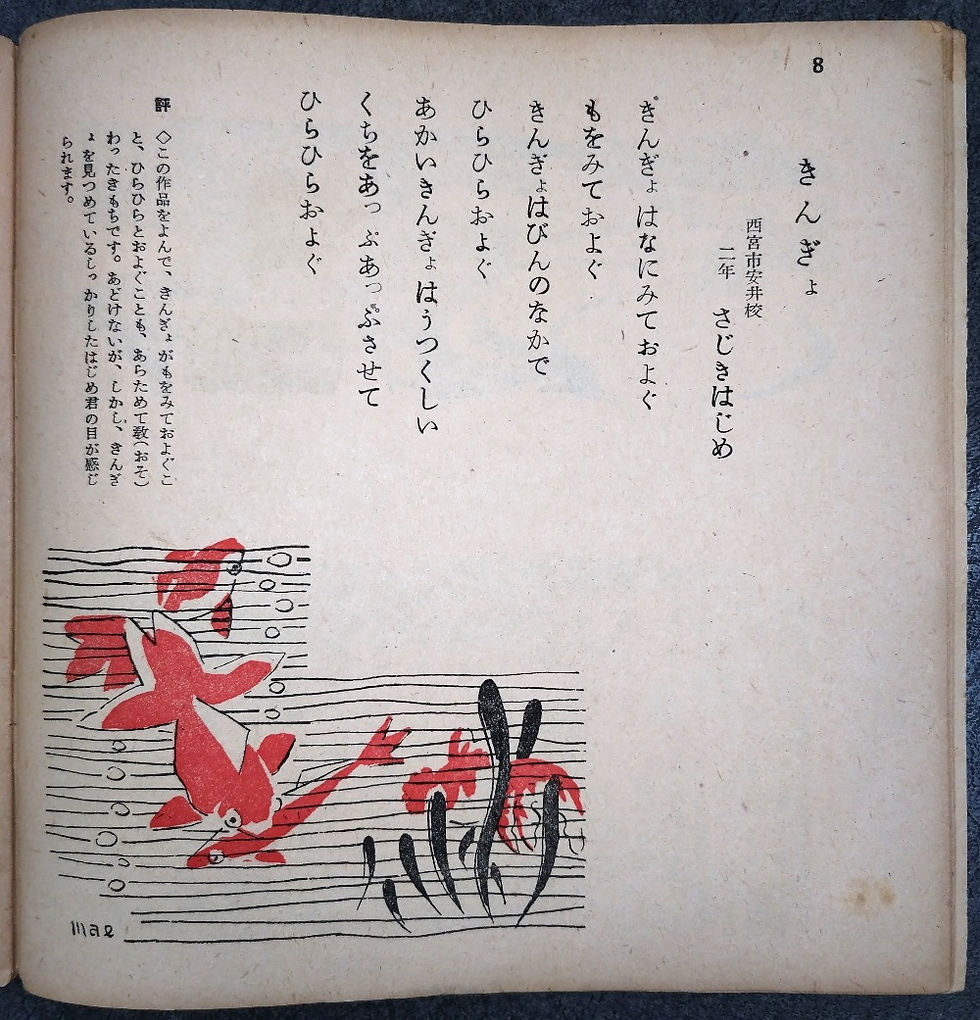 8
きんぎょ
西宮市安井校
二年　さじきはじめ
きんぎょはなにみておよぐ
もをみておよぐ
きんぎょはびんのなかで
ひらひらおよぐ
あかいきんぎょはうつくしい
くちをあっぷあっぷさせて
ひらひらおよぐ
評　◇この作品をよんで、きんぎょがもをみておよぐこ
と、ひらひらとおよぐことも、あらためて教（おそ）
わったきもちです。あどけないが、しかし、きんぎ
ょを見つめているしっかりしたはじめ君の目が感じ
られます。
mae